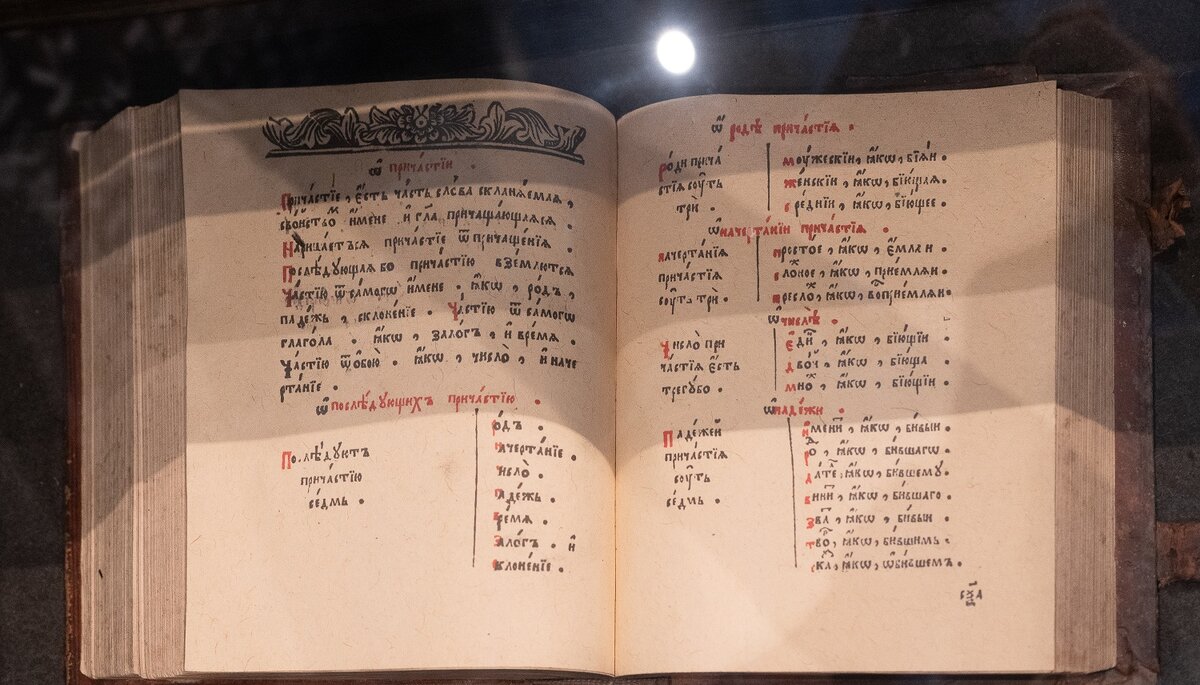 Ѿ причѧ́стїи .
Причѧ́стїе , є҆́сть ча́сть сло́ва склонѧ́емаѧ ,
сво́йство и҆́мене и҆ гл҃а причаща́ющаѧсѧ .
Нарица́етсѧ прича́стїе ѿ причаще́нїѧ .
Послѣ́дующаѧ бо прича́стїю взе́млютсѧ
Ча́стїю ѿ самогѡ и҆́мене . ꙗ҆́кѡ , ро́дъ ,
паде́жь , склоне́нїе . Ча́стїю ѿ самогѡ
глаго́ла . ꙗ҆́кѡ , зало́гъ , и҆ вре́мѧ .
Ча́стїю ѿ ѻ҆бою̀ . ꙗ҆́кѡ , число̀ , и҆ наче
рта́нїе .
Ѿ послѣ́дующихъ прича́стїю .
Послѣ́дуютъ
прича́стїю
се́дмь .
Ро́дъ .
Начерта́нїе .
Число̀ .
Паде́жь .
Вре́мѧ .
Зало́гъ . и҆
Склоне́нїе .
Ѿ ро́дѣ прича́стїѧ .
Ро́ди прича́
стїѧ су́ть
трѝ .
Мꙋ́жескїи , ꙗ҆́кѡ , бїѧ́и .
Же́нскїи , ꙗ҆́кѡ , бїю́щаѧ .
Сре́днїи , ꙗ҆́кѡ , бїю́щее .
Ѿ начерта́нїи прича́стїѧ .
Начерта́нїѧ
прича́стїѧ
су́ть трѝ .
Просто́е , ꙗ҆́кѡ , є҆́млѧи .
Сло́жное , ꙗ҆́кѡ , прїе́млѧи .
Пресло̀ , ꙗ҆́кѡ , воспрїе́млѧи .
Ѿ числѣ̀ .
Число̀ при
ча́стїѧ є҆́сть
трегу́бо .
Є҆ди́н , ꙗ҆́кѡ , бїю́щїи .
Дво́й , ꙗ҆́кѡ , бїю́ща .
Мно́ , ꙗ҆́кѡ , бїю́щїи .
Ѿ паде́жи .
Паде́жей
прича́стїѧ
су́ть
се́дмь .
И҆мени́ , ꙗ҆́кѡ , би́выи .
Ро́ , ꙗ҆́кѡ , би́вшагѡ .
Да́те , ꙗ҆́кѡ , би́вшемꙋ .
Вини́ , ꙗ҆́кѡ , би́вшаго .
Зва́ , ꙗ҆́кѡ , би́выи .
Тво́ , ꙗ҆́кѡ , би́вшимъ .
Ска́ , ꙗ҆́кѡ , ѡ҆би́вшемъ .